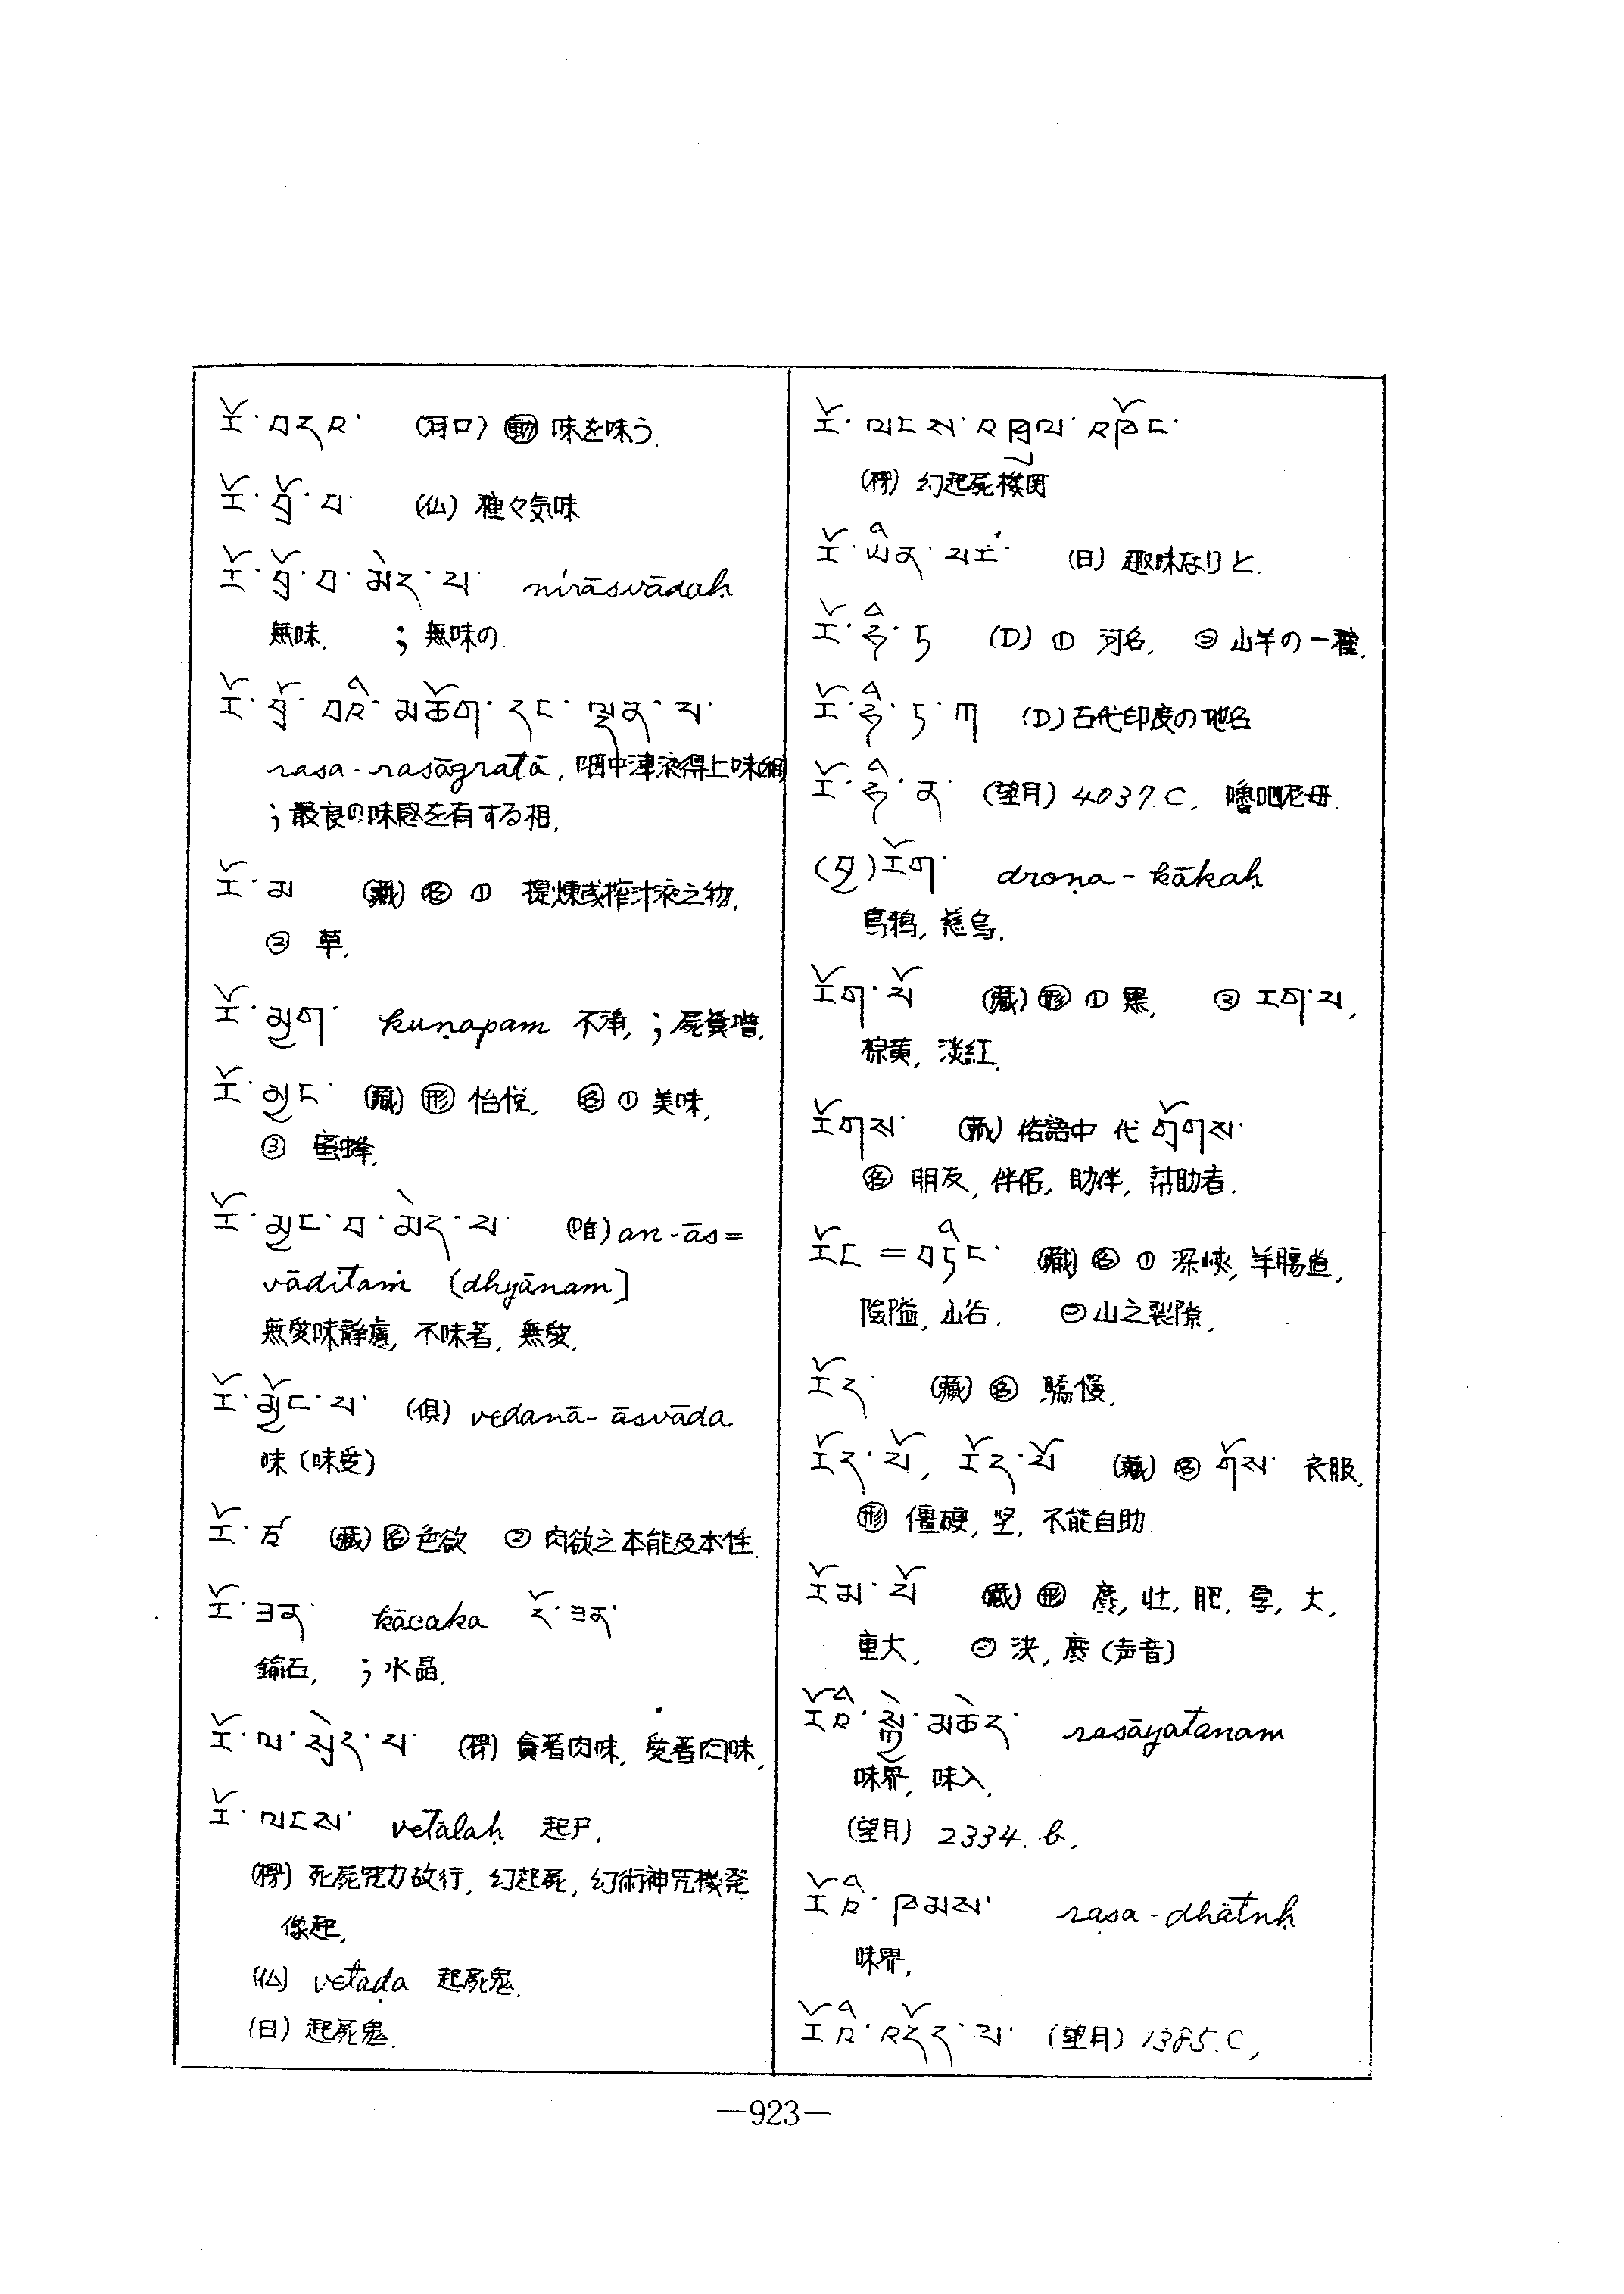 རོ་བདར་ (耳口) 動 味を味う.
རོ་བྲོ་བ་ (仏) 種々気味
རོ་བྲོ་བ་མེད་པ་ nirāsvādaḥ
無味, ; 無味の.
རོ་བྲོ་བའི་མཆོག་དང་ལྡན་པ་
rasa-rasāgratā, 咽中津液得上味相
; 最良の味感を有する相.
རོ་མ (藏) 名 ① 提煉或搾汁液之物,
② 草.
རོ་མྱག་ kuṇapam 不浄, ; 屍糞増.
རོ་མྱང་ (藏) 形 怡悦. 名 ① 美味,
③ 蜜蜂.
རོ་མྱང་བ་མེད་པ་ an-ās=
vāditaṁ [dhyānam]
無愛味静慮, 不味著, 無愛.
རོ་མྱོང་པ་ (倶) vedanā-āsvāda
味 (味受)
རོ་ཙ (藏) 名 色欲 ② 肉欲之本能及本性.
རོ་ཟན་ kācaka རོ་ཟན་
鍮石, ; 水晶.
རོ་ལ་སྲེད་པ་ (楞) 貪著肉味, 愛著肉味,
རོ་ལངས་ vetālaḥ 起尸,
(楞) 死屍咒力故行, 幻起死, 幻術神咒機発
像起,
(仏) vetaḍa 起屍鬼.
(日) 起死鬼.
རོ་ལངས་འཁྲུལ་འཁོང་
(楞) 幻起死機関
རོ་ཡིན་པར་ (日) 趣味なりと.
རོ་ཧི་ཏ (D) ① 河名. ② 山羊の一種.
རོ་ཧི་ཏ་ཀ (D) 古代印度の地名
རོ་ཧི་ན་ (望月) 4037.C, 嚕呬尼母.
(བྱ) རོག་ droṇa-kākaḥ
烏鴉, 慈烏.
རོག་པོ (藏) 形 ① 黒, ② རག་པ,
棕黄, 淡紅.
རོགས་ (藏) 俗語中 代 གྲོགས་
名 朋友, 伴侶, 助伴, 幇助者.
རོང = བཏིང་ (藏) 名 ① 深峡, 羊腸道,
険隘, 山谷. ② 山之裂隙,
རོད་ (藏) 名 驕慢.
རོད་པོ, རོད་པོ (藏) 名 གོས་ 衣服,
形 僵硬, 坚, 不能自助.
རོམ་པོ (藏) 形 麁, 壮, 肥, 厚, 大,
重大, ② 洪, 麁 (声音)
རོའི་སྐྱེ་མཆེད་ rasāyatanam
味界, 味入,
(望月) 2334.b,
རོའི་ཁམས་ rasa-dhātuḥ
味界,
རོའི་འདོད་པ་ (望月) 1385.C,
—923—